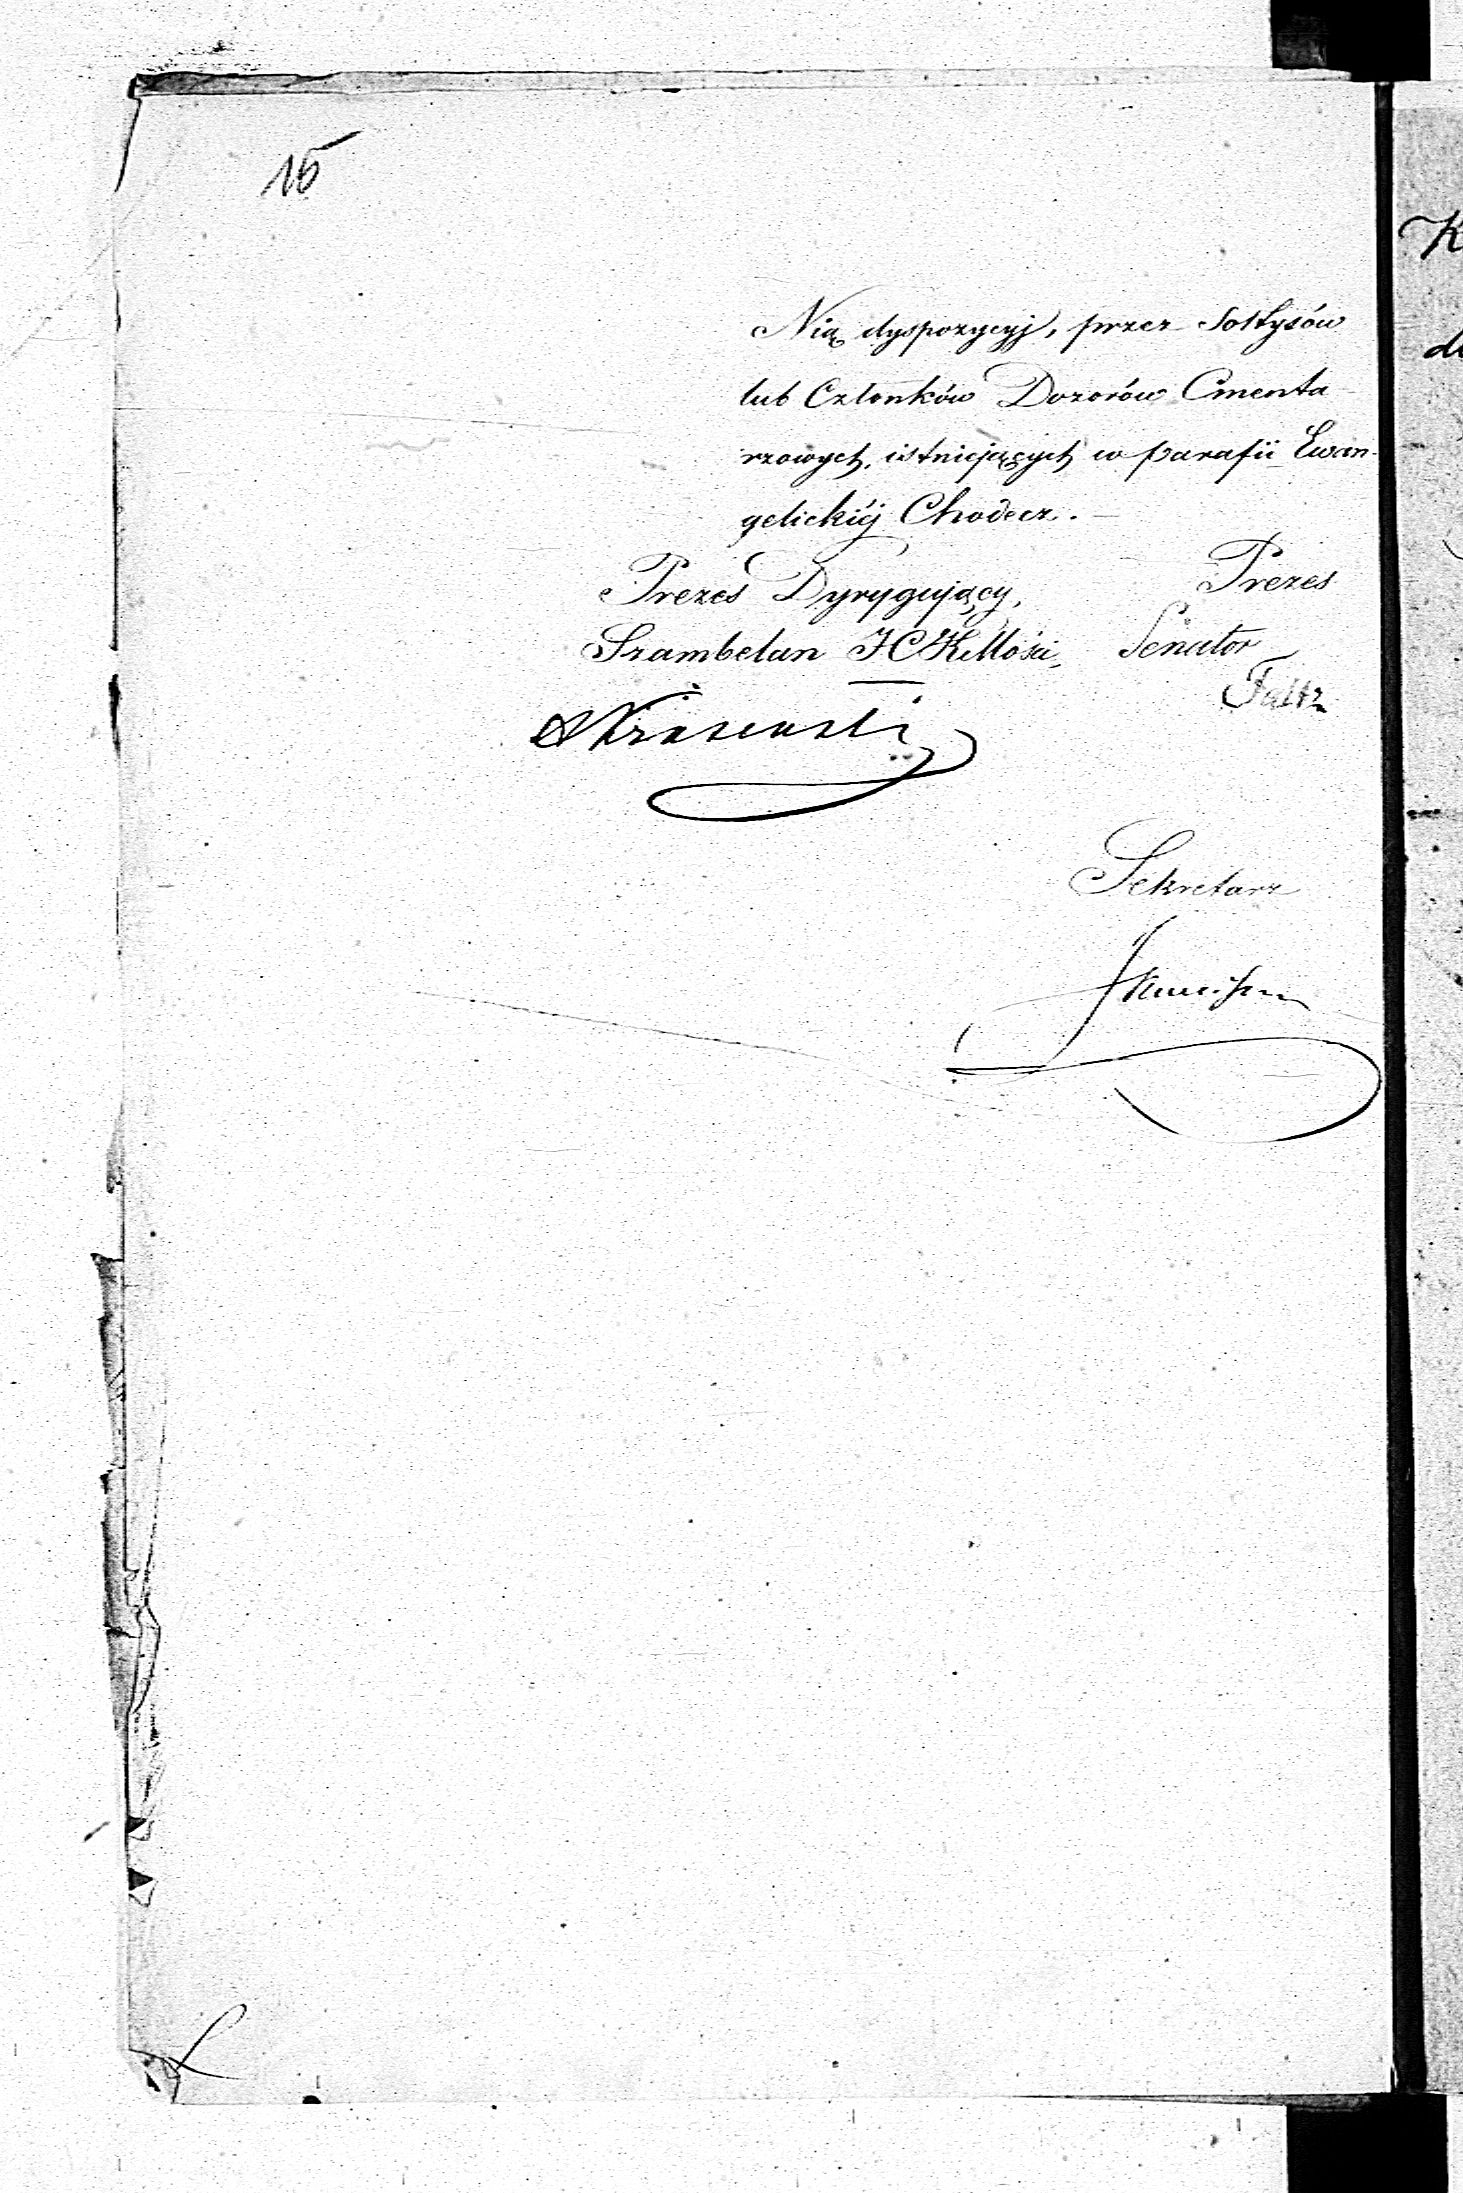 15
Nią dyspozycyj, przez Sołtysów
lub Członków Dozorów Cmenta-
rzowych, istniejących w parafii Ewan-
gelickiéj Chodecz. –
Prezes Dyrygujący, Prezes
Szambelan JCKMości, Senator
Faltz
Sekretarz
K